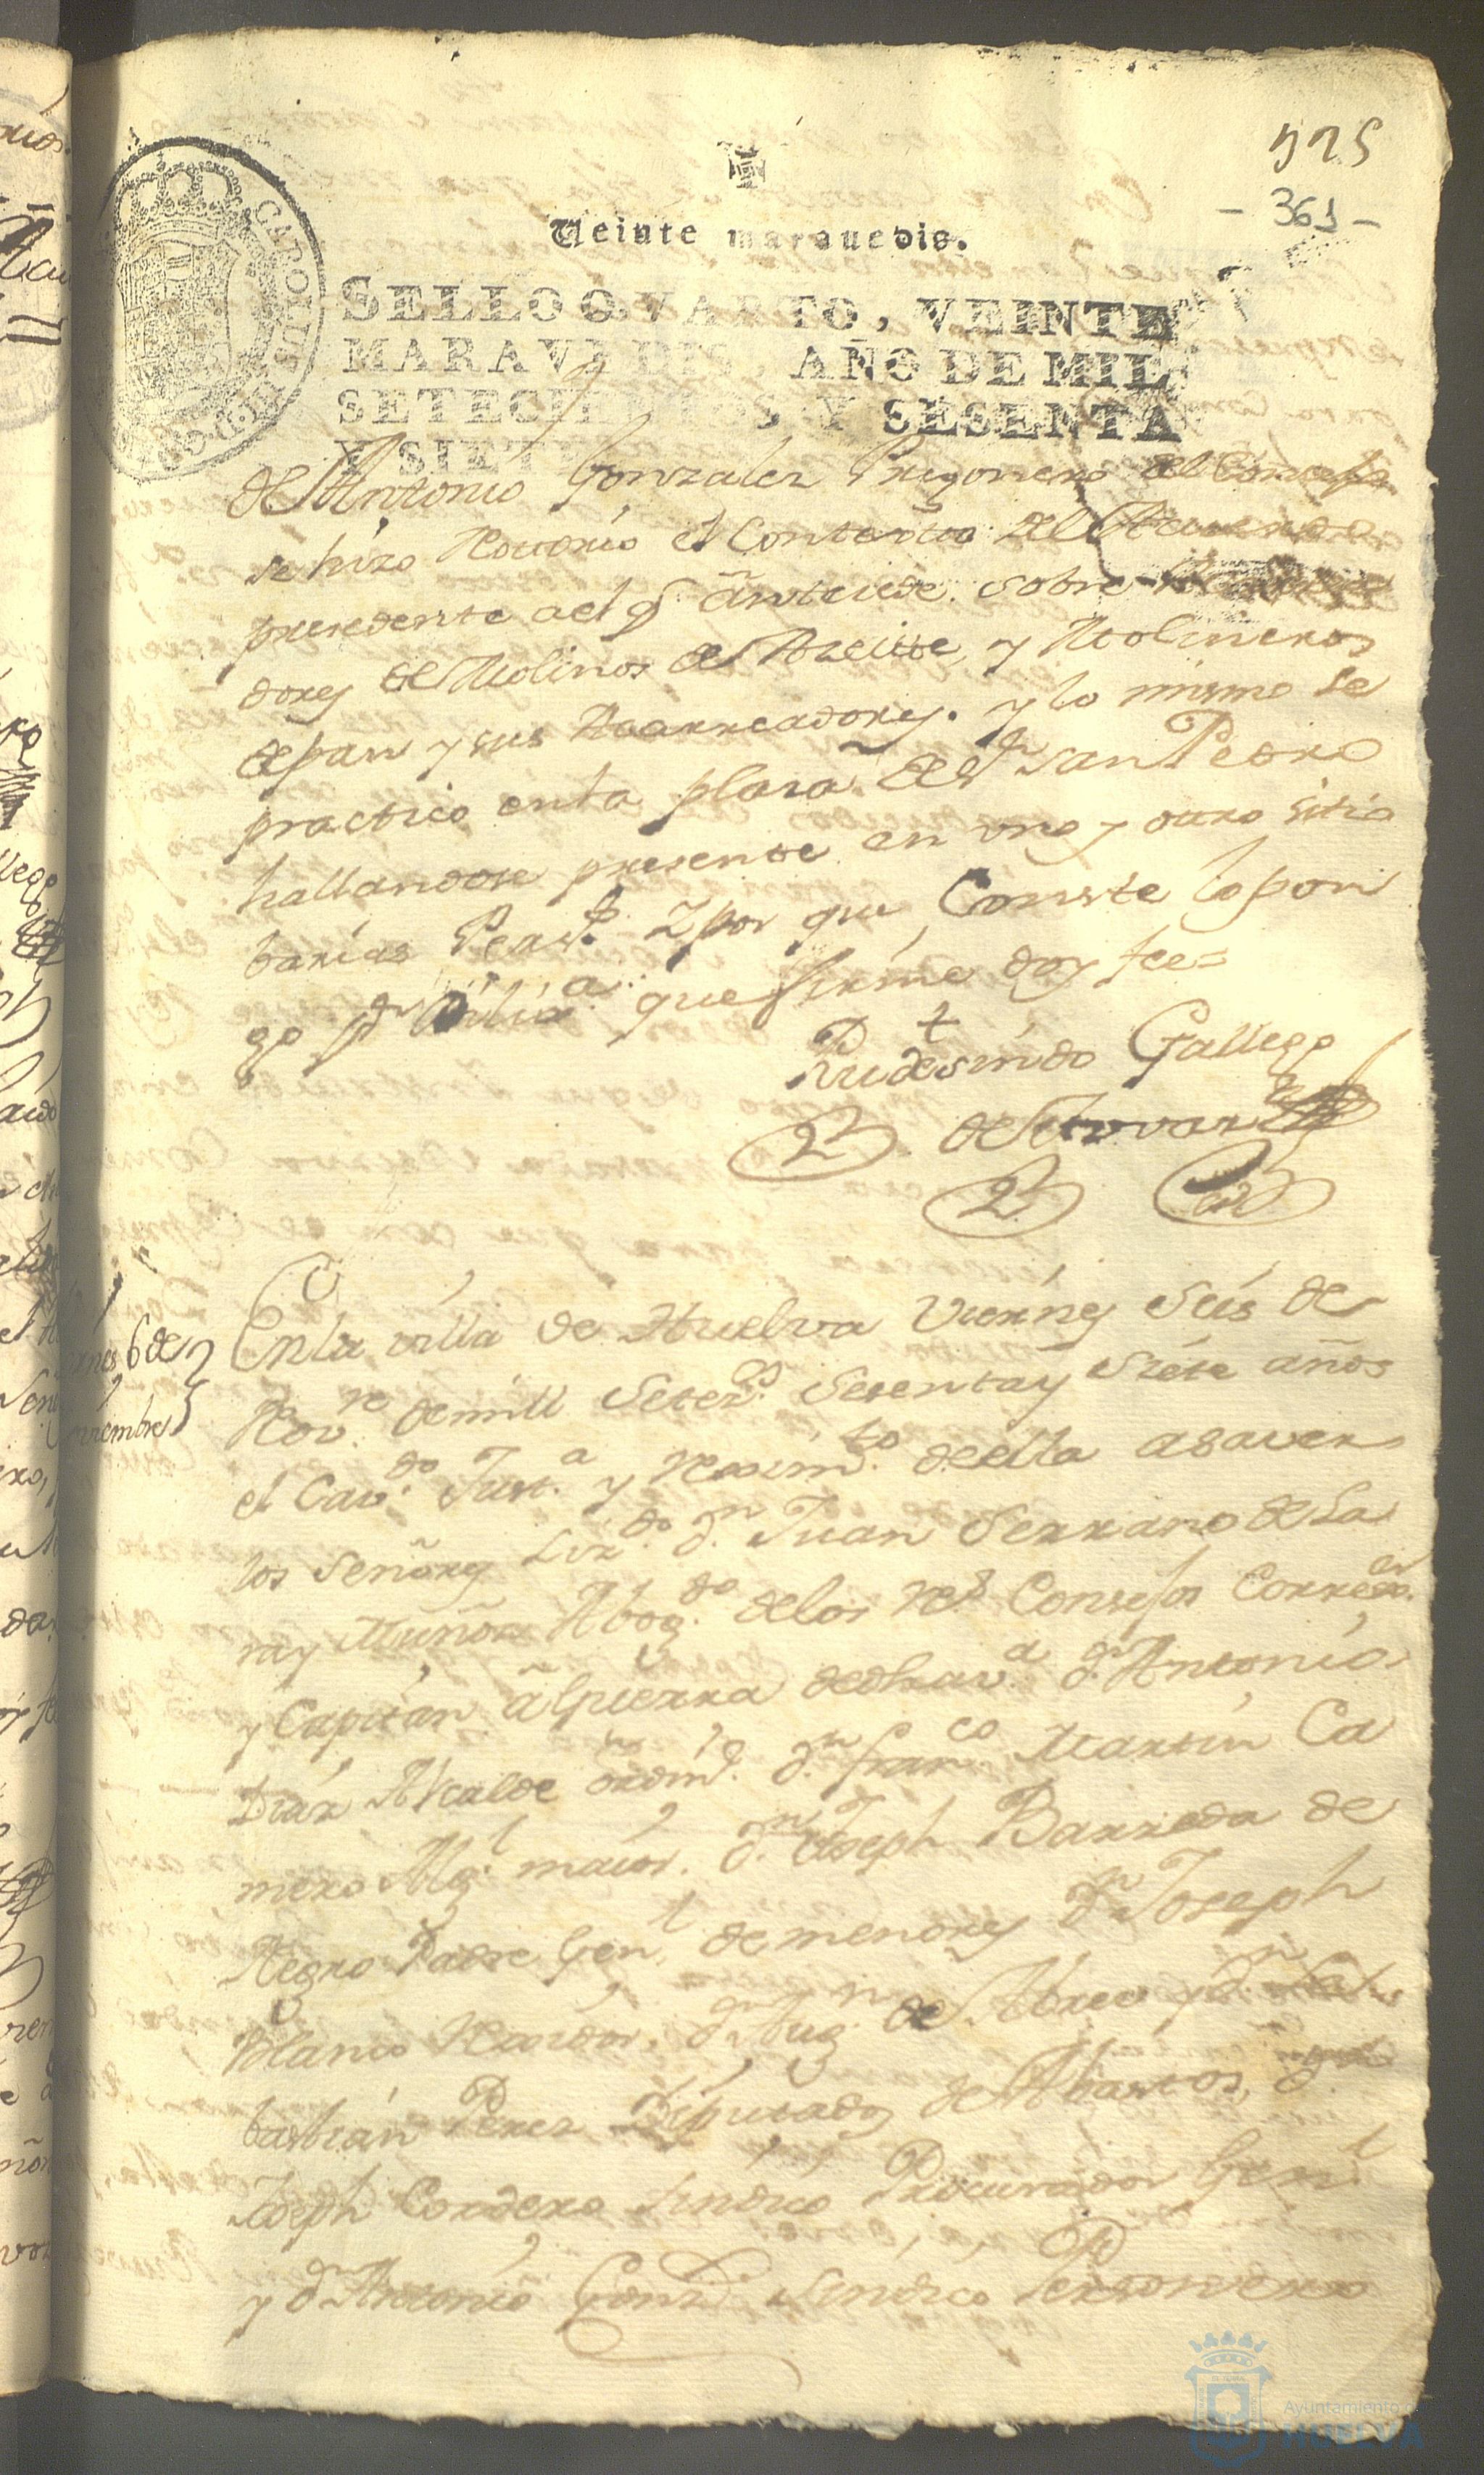 525
- 361 -
Veinte maravedis.
SELLO QVARTO, VEINTE
MARAVEDIS, AÑO DE MIL
SETECIENTOS Y SESENTA
Y SIETE
CATOLICUS
de Antonio Gonzalez Pregonero del Concejo
se hizo Notorio el Contenido del Acuerdo
presedente aelq.e antecede. sobre
dores de Molinos de Azeite, y Molineros
depan y sus Acarreadores. y lo mismo se
practico enla plaza de Sn San Pedro
hallandose presente en uno y otro sitio
barias Pers.s Y por que Conste lo pon
go pr Dilix.a que firme doy fee=
Rudesindo Gallego
de Thovar
Viernes 6 de
Noviembre
Enla villa de Huelva Viernes Seis de
Nov.re demill Setez.os Sesentay Siete años
el Cav.do Just.a y Reximt.o deella asaver
los Señores Liz.do d.n Juan Serrano de La
ra y Muñoz Abog.do delos R.s Consejos Correx.or
y Capitan aGuerra dedha v.a d.n Antonio
Diaz Alcalde ordin.o d.n fran.co Martin Ca
mero Alg.l maior. d.n Joseph Barreda de
Negro Padre Gen.l de menores d.n Joseph
Blanco Rexidor, d.n Aug.n de Abreu y d.n Se
bastian Perez Diputados de Abastos, d.n
Joseph Cordero Sindico Procurador Gen.l
y d.n Antonio Gonz.z Sindico Personero
Ayuntamiento de
HUELVA